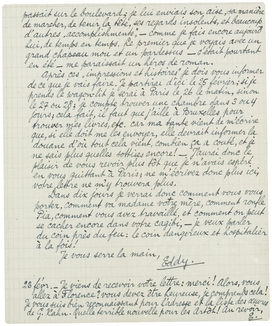 passait sur le boulevard; je lui enviais son aise, sa manière
de marcher, de tenir la tête, ses regards insolents, et beaucoup
d'autres "accomplishments", — comme je fais encore aujourd'
hui, de temps en temps. Le premier que je voyais avec un
grand chapeau mou et un pardessus — c'était pourtant
en été — me paraissait un héros de roman.
Après ces impressions et histoires, je dois vous informer
de ce que je vais faire. Je partirai d'ici le 25 février; si je
prends le, je serai à Paris le 26 le matin, sinon
le 27 ou 28; je compte trouver une chambre dans 3 ou 4
jours; cela fait, il faut que j'aille à Bruxelles pour
trouver mes livres, etc. Car ma tante vient de m'écrire
que, si elle doit me les envoyer, elle devrait informer la
douane d'où tout cela vient, combien ça a coûté, et je
ne sais plus quelles sottises encore! — J'aurai donc le
plaisir de vous revoir plus tôt que je n'avais espéré
en vous quittant à Paris; ne m'écrivez donc plus ici,
votre lettre ne m'y trouvera plus.
Dans dix jours je verrai donc comment vous vous
portez, comment va madame votre mère, comment ronfle
Pia, comment vous avez travaillé, et comment on peut
se cacher encore dans votre — je veux parler
du coin près du feu: le coin dangereux et hospitalier
à la fois!
Je vous serre la main,
Eddy.
23 févr. — Je viens de recevoir votre lettre: merci! Alors, vous
allez à Florence! vous devez être heureuse, je comprends cela!
Je vous suis bien reconnaissant pour l'adresse et la liste des œuvres
de G. Kahn. Quelle terrible nouvelle pour les Artôt! Au revoir,